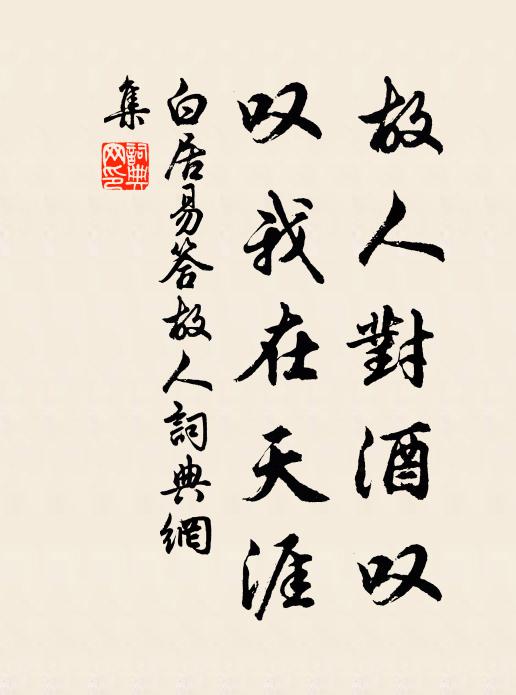 故人對酒叹
叹我在天涯
白居易答故人詞典網
集
詞典
网印